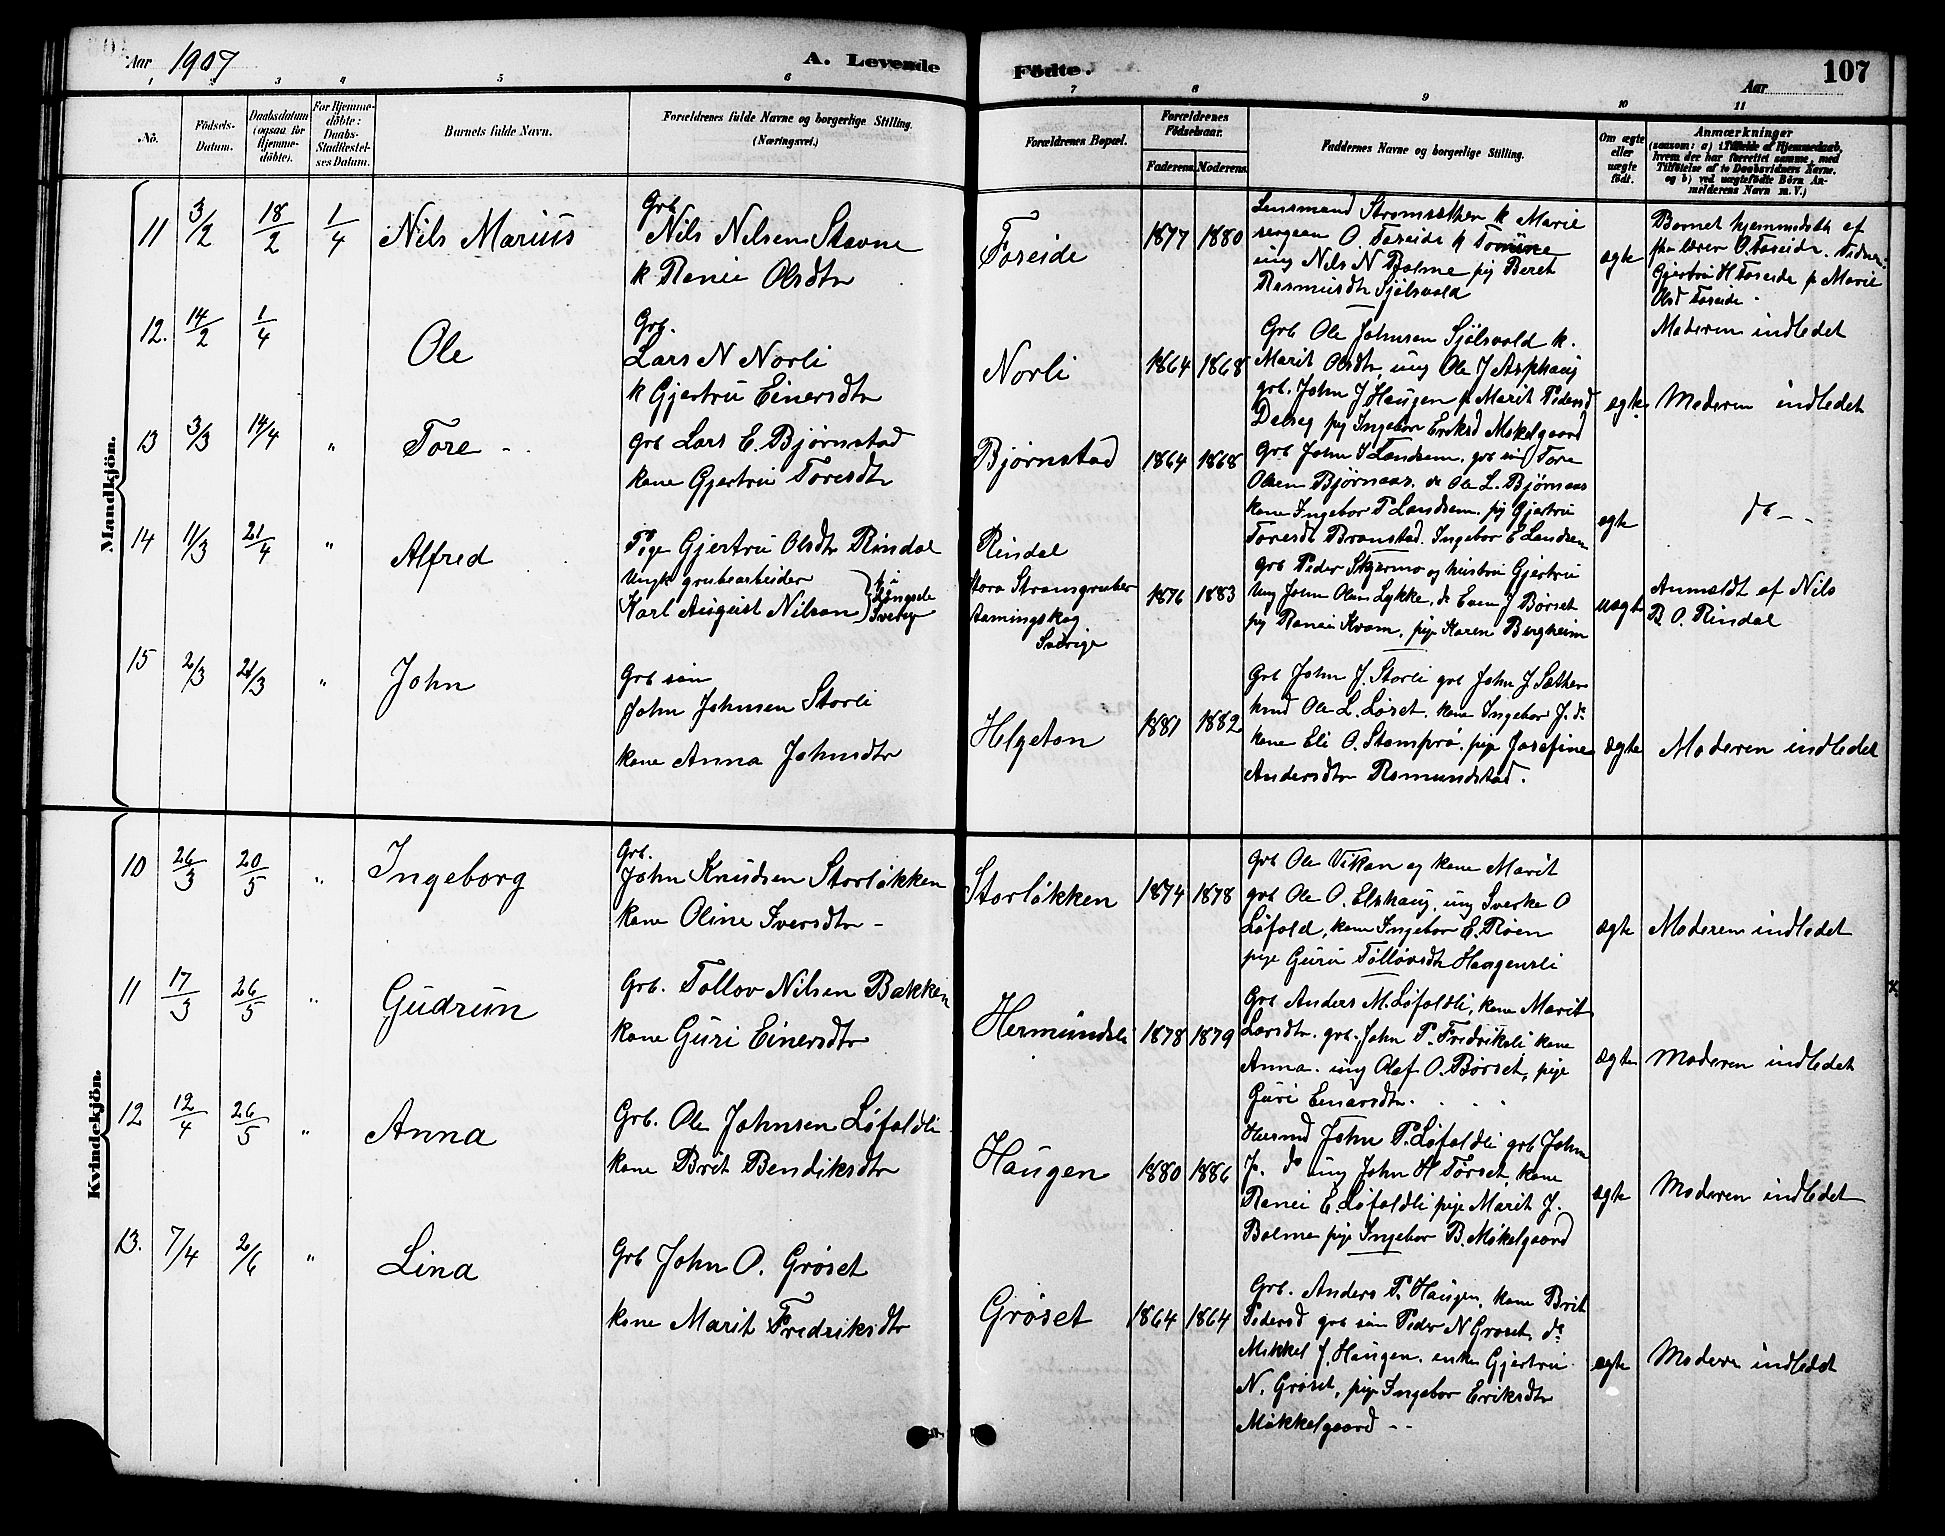 Aar 1907
A. Levende
Fødte.
Aar
107
1 2 3 4 5 6 7 8 9 10 11
No.
Fødsels-Datum.
Daabsdatum (ogsaa for Hjemmedøbte).
For Hjemmedøbte: Daabs-Stadfæstelses Datum.
Barnets fulde Navn.
Forældrenes fulde Navne og borgerlige Stilling. (Næringsvei.)
Forældrenes Bopæl.
Forældrenes Fødselsaar.
Faderens Moderens
Faddernes Navne og borgerlige Stilling.
Om ægte eller uægte født.
Anmærkninger
(saasom: a) i Tilfælde af Hjemmedaab,
hvem der har forrettet samme, med
Tilføielse af to Daabsvidners Navne.
og b) ved uægtefødte Børn Anmelderens Navn m. V.)
Mandkjön.
11 3/2 18/2 1/4 Nils Marius
Grb
Nils Nilsen Stavne
k Ranei Olsdtr
Foreide
1877 1880
Lensmand Strømsæther k Marie
sergean O. Foreide k
ung Nils N Bolme pig Beret
Rasmusdtr Sjølsvold
ægte
Barnet hjemmedøbt af
lærer O. Foseide.
Gjertru H Foseide p Marie
Olsd Foseide.
Moderen indledet
12. 14/2 1/4 Ole
Grb.
Lars N Norli
k Gjertru Einersdtr
Norli
1864 1868
Grb Ole Johnsen Sjølsvold k.
Marit Olsdtr, ung Ole J Asphaug
grb. John J Haugen p Marit Pedersd
pig Ingebor Eriksd Mokelgaard
ægte
Moderen indledet
13 3/3 14/4 " Tore -
Grb Lars E. Bjørnstad
kone Gjertru Toresdtr
Bjørnstad
1864 1868
Grb John J Landsem. grb Tore
Olsen Bjørnaas. do Ole L. Bjørnaas
kone Ingebor P Landsem. pig Gjertru
Toresdt Brønstad. Ingebor E Landsem
ægte
do -
14 11/3 21/4 " Alfred
Pige Gjertru Olsdtr Rindal
Ungk grubearbeider
Karl August Nilson
Rindal
Stora Stramsgruber
Sverige
1876 1883
grb Peder Stjærmo og hustru Gjertru
Ung John Olsen Lykke, do Even J Børset
pig Ranei Kvam, pige Karen Bergheim
uægte
Anmeldt af Nils
B. O. Rindal
15 2/3 21/3 " John
Grb søn
John Johnsen Storli
kone Anna Johnsdtr
Helgeton
1881 1882
Grb John J. Storli grb John J. Sæther
husmd Ole L. Løset. kone Ingebor J. do
kone Eli O. Stomprø. pige Josefine
Andersdtr Romundstad.
ægte
Moderen indledet
Kvindekjön.
10 26/3 20/5 " Ingeborg
Grb.
John Knudsen Storløkken
kone Oline Iversdtr -
Storløkken
1874 1878
Grb Ole Vikan og kone Marit
grb Ole O. Elshaug. ung Sverke O
Løfald, kone Ingebor E. Røen
pige Guru Følløvsdtr Haagensli
ægte
Moderen indledet
11 17/3 26/5 " Gudrun
Grb. Tollov Nilsen Bakken
kone Guri Einersdtr
Hermundsli
1878 1879
Grb Anders M. Løfaldli, kone Marit
Larsdtr. grb. John P. Fredriksli kone
Anna. ung Olaf O. Børset, pige
Guri Einarsdtr.
ægte
Moderen indledet
12 12/4 26/5 " Anna
Grb. Ole Johnsen Løfaldli
kone Brit Bendiksdtr
Haugen
1880 1886
Husmd John P. Løfaldli grb John
P. do ung John H Tørset, kone
Ranei E. Løfaldli pige Marit J.
Bolme pige Ingebor B. Møkelgaard
ægte
Moderen indledet
13. 7/4 2/6 " Lina
Grb John O. Grøset
kone Marit Fredriksdtr
Grøset
1864 1864
Grb. Anders P. Haugen, kone Brit
Pedersd grb søn Peder N Grøset, do
Mikkel J. Haugen. enke Gjertru
N. Grøset, pige Ingebor Eriksdtr
Møkkelgaard --
ægte
Moderen indledet